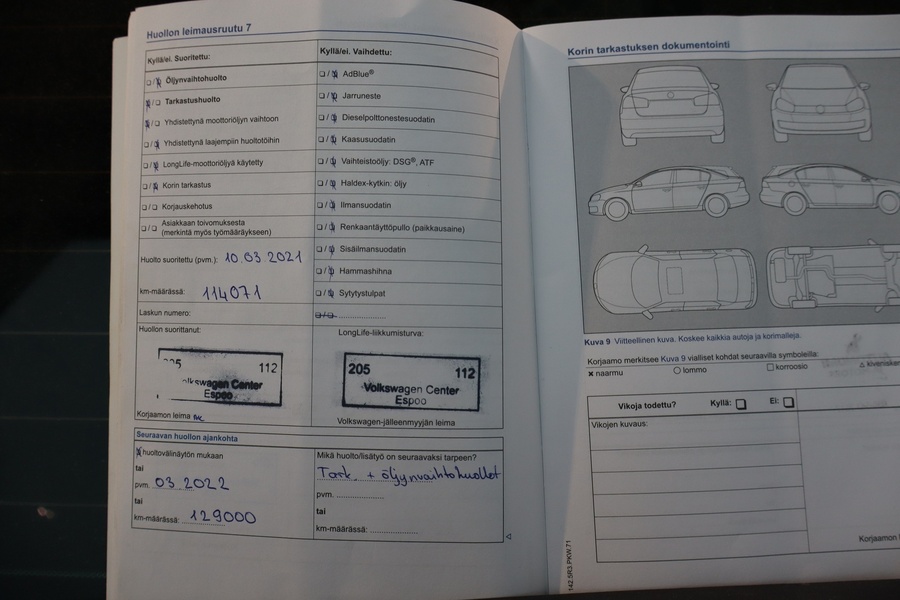 Huollon leimausruutu 7
Kyllä/ei. Suoritettu:
Öljynvaihtohuolto
Tarkastushuolto
Yhdistettynä moottoriöljyn vaihtoon
Yhdistettynä laajempiin huoltotöihin
LongLife-moottoriöljyä käytetty
Korin tarkastus
Korjauskehotus
Asiakkaan toivomuksesta
(merkintä myös työmääräykseen)
Huolto suoritettu (pvm.): 10.03.2021
km-määrässä: 114071
Laskun numero:
Kyllä/ei. Vaihdettu:
AdBlue®
Jarruneste
Dieselpolttonestesuodatin
Kaasusuodatin
Vaihteistoöljy: DSG®, ATF
Haldex-kytkin: öljy
Ilmansuodatin
Renkaantäyttöpullo (paikkausaine)
Sisäilmansuodatin
Hammashihna
Sytytystulpat
Huollon suorittanut:
205 112
Volkswagen Center
Espoo
Korjaamon leima
LongLife-liikkumisturva:
205 112
Volkswagen Center
Espoo
Volkswagen-jälleenmyyjän leima
Seuraavan huollon ajankohta
huoltovälinäytön mukaan
tai
pvm. 03.2022
tai
km-määrässä: 129000
Mikä huolto/lisätyö on seuraavaksi tarpeen?
Tark. + öljynvaihtohuollot
pvm. ....................
tai
km-määrässä: ....................
Korin tarkastuksen dokumentointi
Kuva 9 Viitteellinen kuva. Koskee kaikkia autoja ja korimalleja.
Korjaamo merkitsee Kuva 9 vialliset kohdat seuraavilla symboleilla:
× naarmu ○ lommo □ korroosio △ kiveniskem
Vikoja todettu? Kyllä: □ Ei: □
Vikojen kuvaus:
Korjaamon
142.5R3.PKW.71